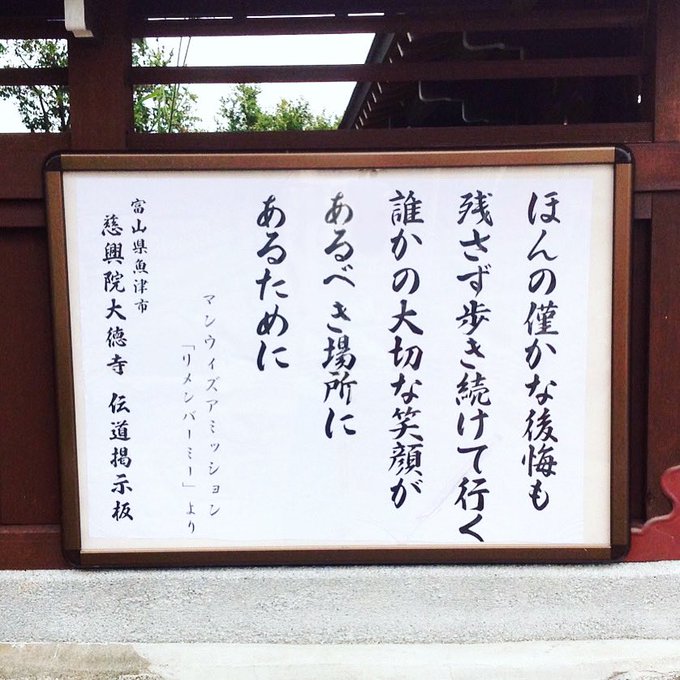 ほんの僅かな後悔も
残さず歩き続けて行く
誰かの大切な笑顔が
あるべき場所に
あるために
マンウィズアミッション
「リメンバーミー」より
富山県魚津市
慈興院大徳寺 伝道掲示板